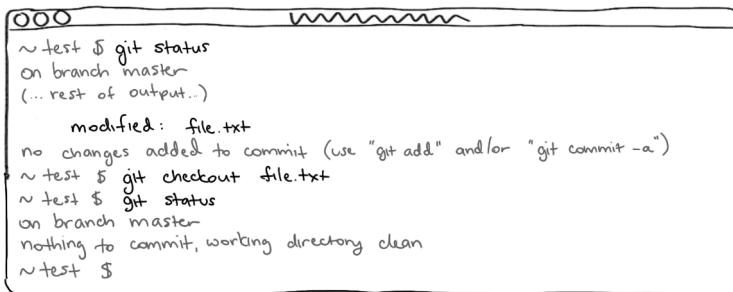 ~ test $ git status
on branch master
(... rest of output..)
modified: file.txt
no changes added to commit (use "git add" and/or "git commit -a")
~ test $ git checkout file.txt
~ test $ git status
on branch master
nothing to commit, working directory clean
~ test $